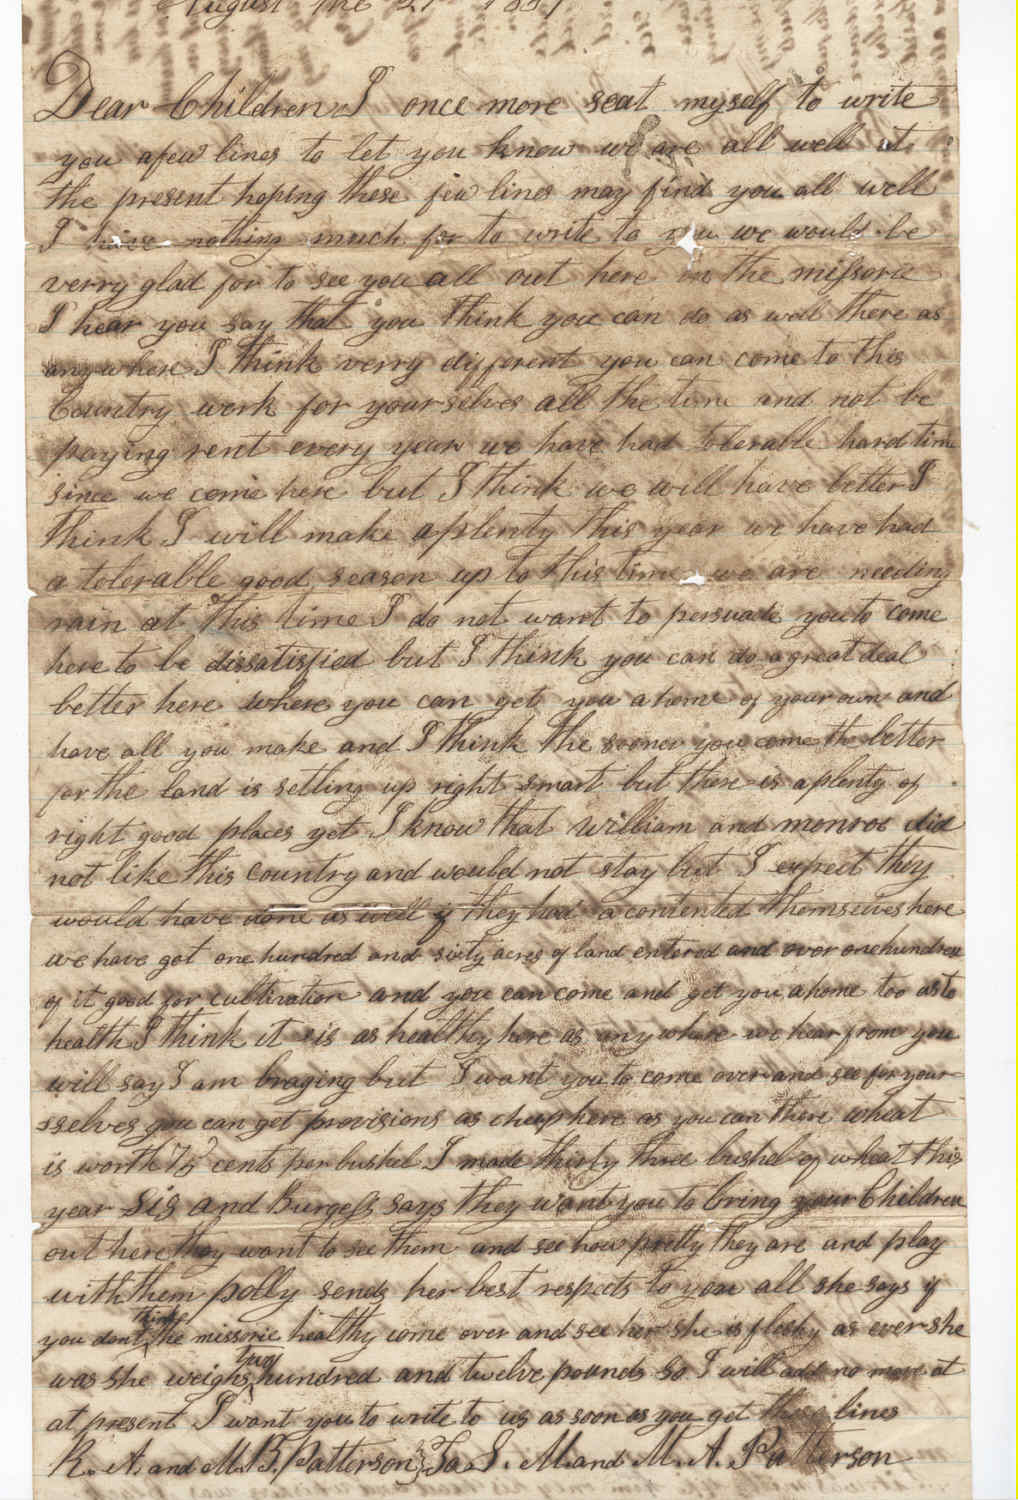 August the 21 1857
Dear Children I once more seat myself to write
you afew lines to let you know we are all well at
the present hoping these few lines may find you all well
I have nothing much for to write to you we would be
verry glad for to see you all out here in the missorie
I hear you say that you think you can do as well there as
anywhere I think verry different you can come to this
Country werk for yourselves all the time and not be
paying rent every year we have had tolerable hard time
since we come here but I think we will have better I
think I will make aplenty this year we have had
a tolerable good season up to this time we are needing
rain at this time I do not want to persuade you to come
here to be dissatisfied but I think you can do agreat deal
better here where you can get you ahome of your own and
have all you make and I think the sooner you come the better
for the land is setling up right smart but there is aplenty of
right good places yet I know that william and monroe did
not like this country and would not stay but I expect they
would have done as well if they had acontented themselves here
we have got one hundred and sixty acres of land entered and over onehundred
of it good for cultivation and you can come and get you ahome too as to
health I think it is as healthy here as anywhere we hear from you
will say I am braging but I want you to come over and see for your
sselves you can get provisions as cheap here as you can there wheat
is worth 75 cents per bushel I made thirty three bushel of wheat this
year Sis and Burgess says they want you to bring your Children
out here they want to see them and see how pretty they are and play
with them polly sends her best respects to you all she says if
you dont think the missorie healthy come over and see her she is fleshy as ever she
was she weighs two hundred and twelve pounds so I will add no more at
at present I want you to write to us as soon as you get these lines
R. A. and M. B. Patterson To S. M. and M. A. Patterson